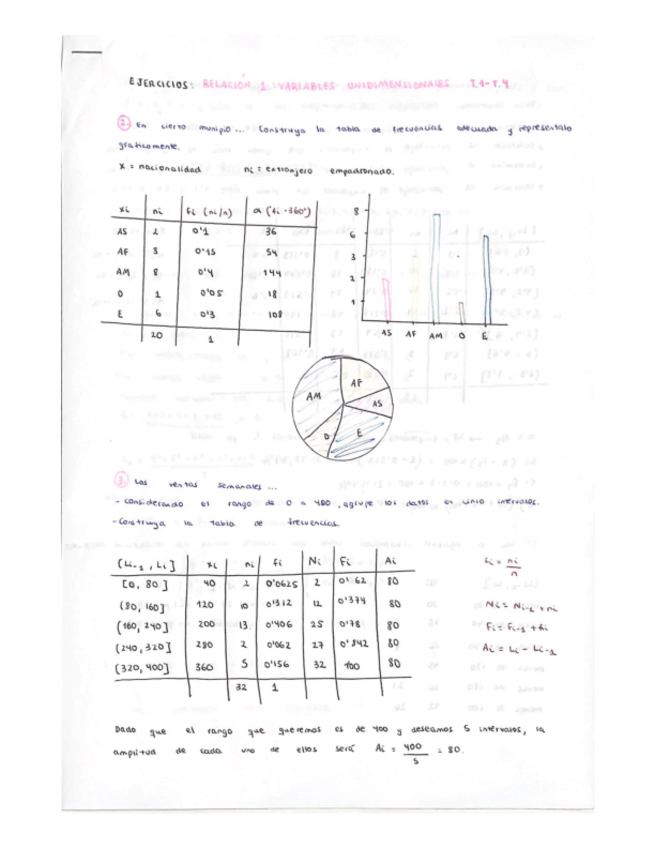 EJERCICIOS: RELACIÓN 1: VARIABLES UNIDIMENSIONALES T.1-T.4
2. En cierto munipio... Construya la tabla de frecuencias adecuada y represéntalo
gráficamente.
X = nacionalidad ni = extranjero empadronado.
xi ni fi (ni/n) α (fi · 360°)
AS 2 0'1 36
AF 3 0'15 54
AM 8 0'4 144
O 1 0'05 18
E 6 0'3 108
20 1
8
6
3
2
1
AS AF AM O E
AM AF AS O E
3. Las ventas semanales...
- Considerando el rango de 0 a 400, agrupe los datos en cinco intervalos.
- Construya la tabla de frecuencias.
[Li-1, Li] xi ni fi Ni Fi Ai
[0, 80] 40 2 0'0625 2 80
(80, 160] 120 10 0'312 12 0'374 80
(160, 240] 200 13 0'406 25 0'78 80
(240, 320] 280 2 0'062 27 0'842 80
(320, 400] 360 5 0'156 32 80
32 1
fi = ni/n
Ni = Ni-1 + ni
Fi = Fi-1 + fi
Ai = Li - Li-1
Dado que el rango que queremos es de 400 y deseamos 5 intervalos, la
amplitud de cada uno de ellos será Ai = 400/5 = 80.